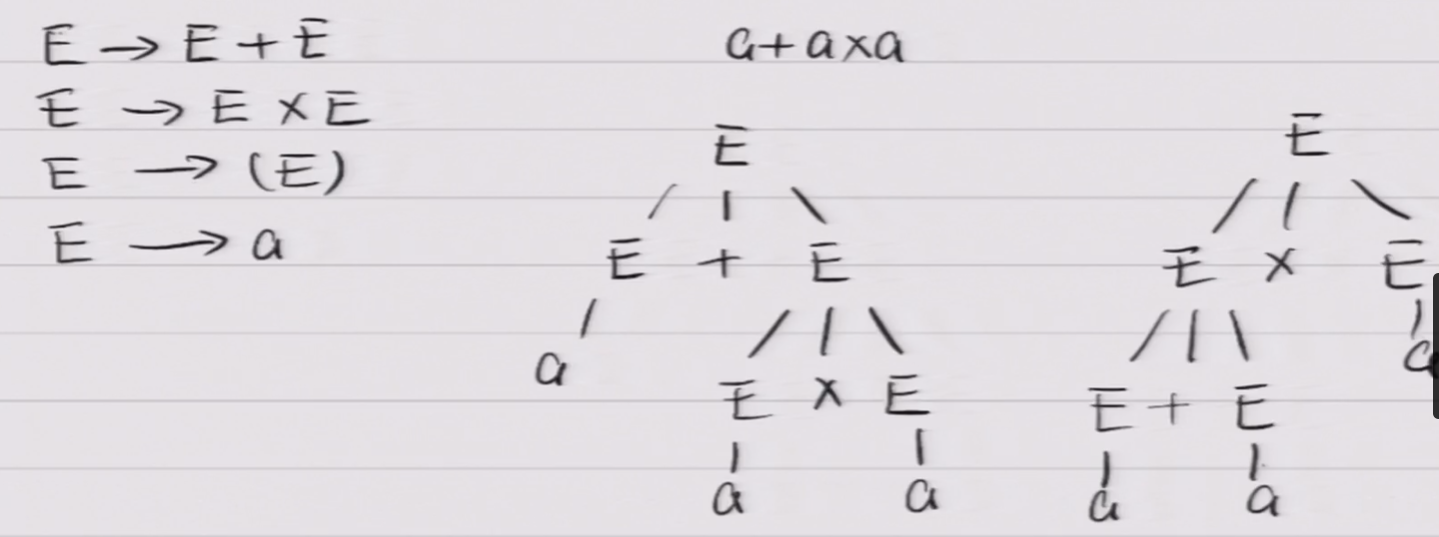 E → E + E
E → E × E
E → (E)
E → a
a+a×a
E
E + E
a
E × E
a a
E
E × E
a
E + E
a a